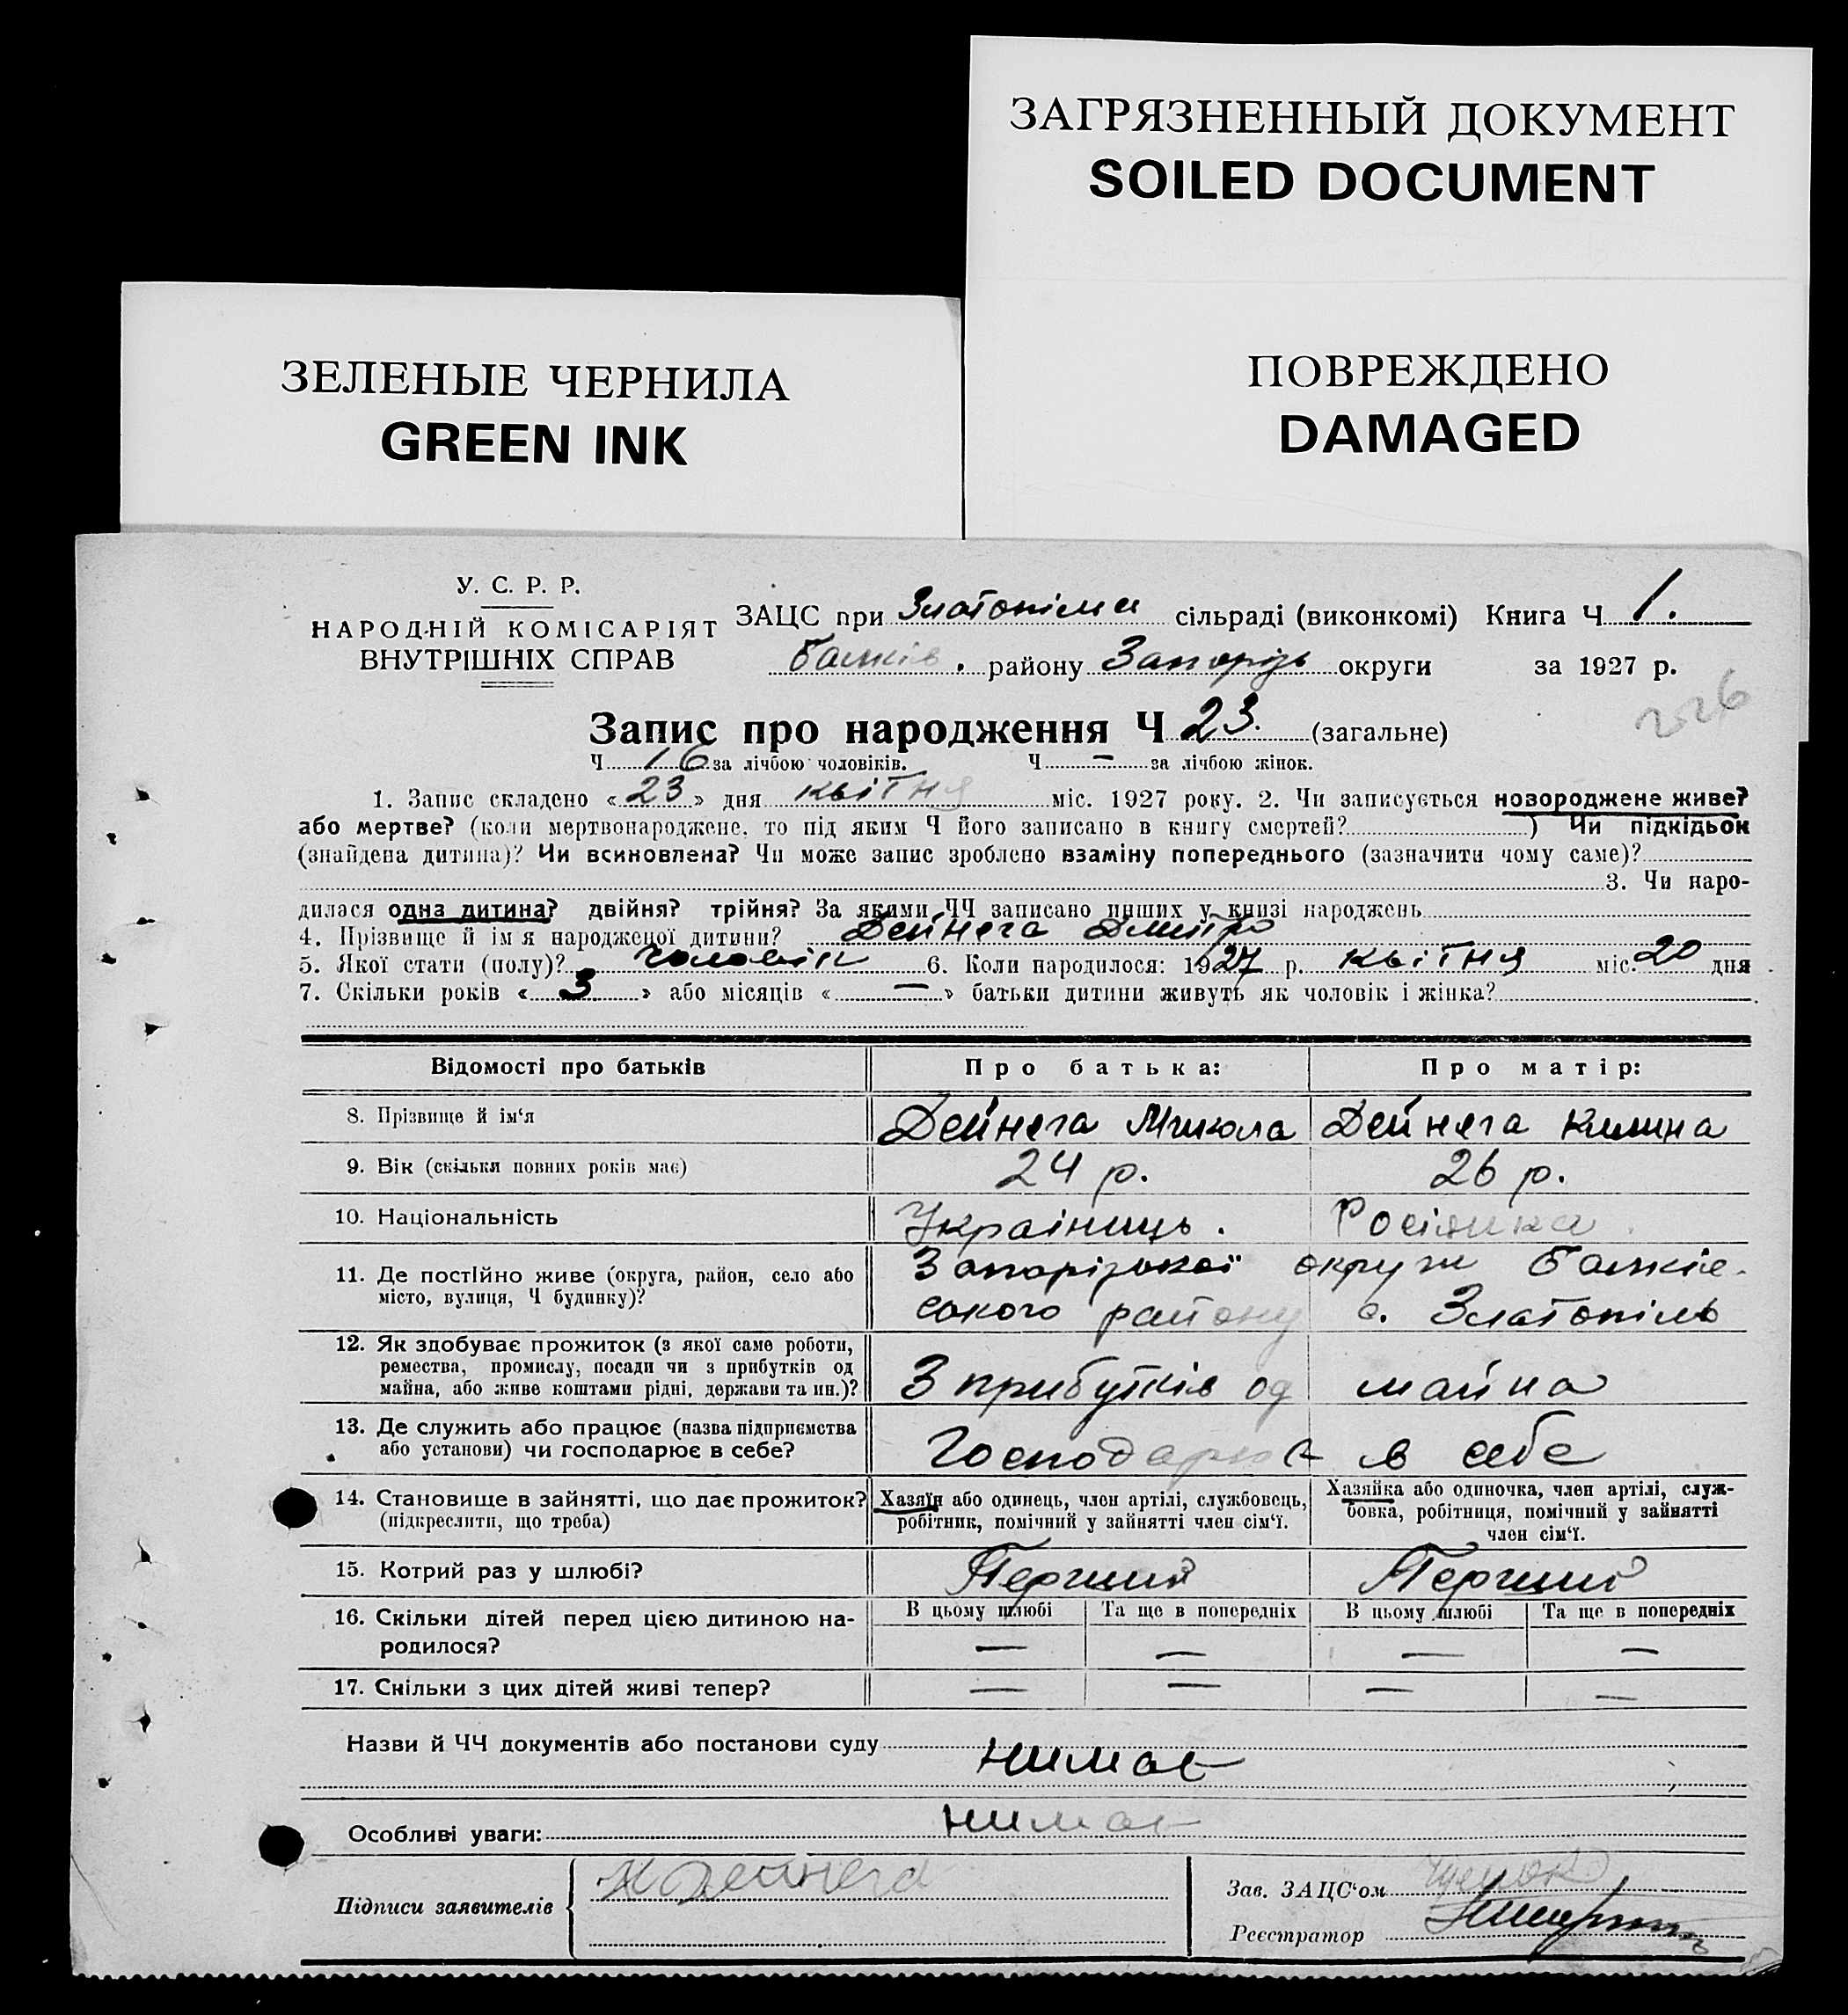 ЗАГРЯЗНЕННЫЙ ДОКУМЕНТ
SOILED DOCUMENT
ЗЕЛЕНЫЕ ЧЕРНИЛА
GREEN INK
ПОВРЕЖДЕНО
DAMAGED
У. С. Р. Р.
НАРОДНІЙ КОМІСАРІЯТ
ВНУТРІШНІХ СПРАВ
ЗАЦС при Златопільи сільраді (виконкомі) Книга Ч 1.
Балків. району Запоріз округи за 1927 р.
226
Запис про народження Ч 23. (загальне)
Ч 16 за лічбою чоловіків. Ч — за лічбою жінок.
1. Запис складено «23» дня квітня міс. 1927 року. 2. Чи записується новороджене живе?
або мертве? (коли мертвонароджене, то під яким Ч його записано в книгу смертей? ) Чи підкідьок
(знайдена дитина)? Чи всиновлена? Чи може запис зроблено взаміну попереднього (зазначити чому саме)?
3. Чи наро-
дилася одна дитина? двійня? трійня? За якими ЧЧ записано инших у книзі народжень
4. Прізвище й імя народженої дитини? Дейнега Дмитро
5. Якої стати (полу)? чоловік 6. Коли народилося: 1927 р. квітня міс. 20 дня
7. Скільки років «3» або місяців «—» батьки дитини живуть як чоловік і жінка?
Відомості про батьків Про батька: Про матір:
8. Прізвище й ім'я Дейнега Микола Дейнега Килина
9. Вік (скільки повних років має) 24 р. 26 р.
10. Національність Україниць. Росіянка.
11. Де постійно живе (округа, район, село або Запорізької округи Балків-
місто, вулиця, Ч будинку)? ського району с. Златопіль
12. Як здобуває прожиток (з якої саме роботи,
ремества, промислу, посади чи з прибутків од
майна, або живе коштами рідні, держави та ин.)? З прибутків од майна
13. Де служить або працює (назва підприємства
або установи) чи господарює в себе? Господарює в себе
14. Становище в зайнятті, що дає прожиток? Хазяїн або одинець, член артілі, службовець, Хазяйка або одиночка, член артілі, служ-
(підкреслити, що треба) робітник, помічний у зайнятті член сім'ї. бовка, робітниця, помічний у зайнятті
член сім'ї.
15. Котрий раз у шлюбі? Перший Перший
16. Скільки дітей перед цією дитиною на- В цьому шлюбі Та ще в попередніх В цьому шлюбі Та ще в попередніх
родилося? — — — —
17. Скільки з цих дітей живі тепер? — — — —
Назви й ЧЧ документів або постанови суду нимає
Особливі уваги: нимає
Підписи заявителів Н Дейнега
Зав. ЗАЦС'ом
Реєстратор